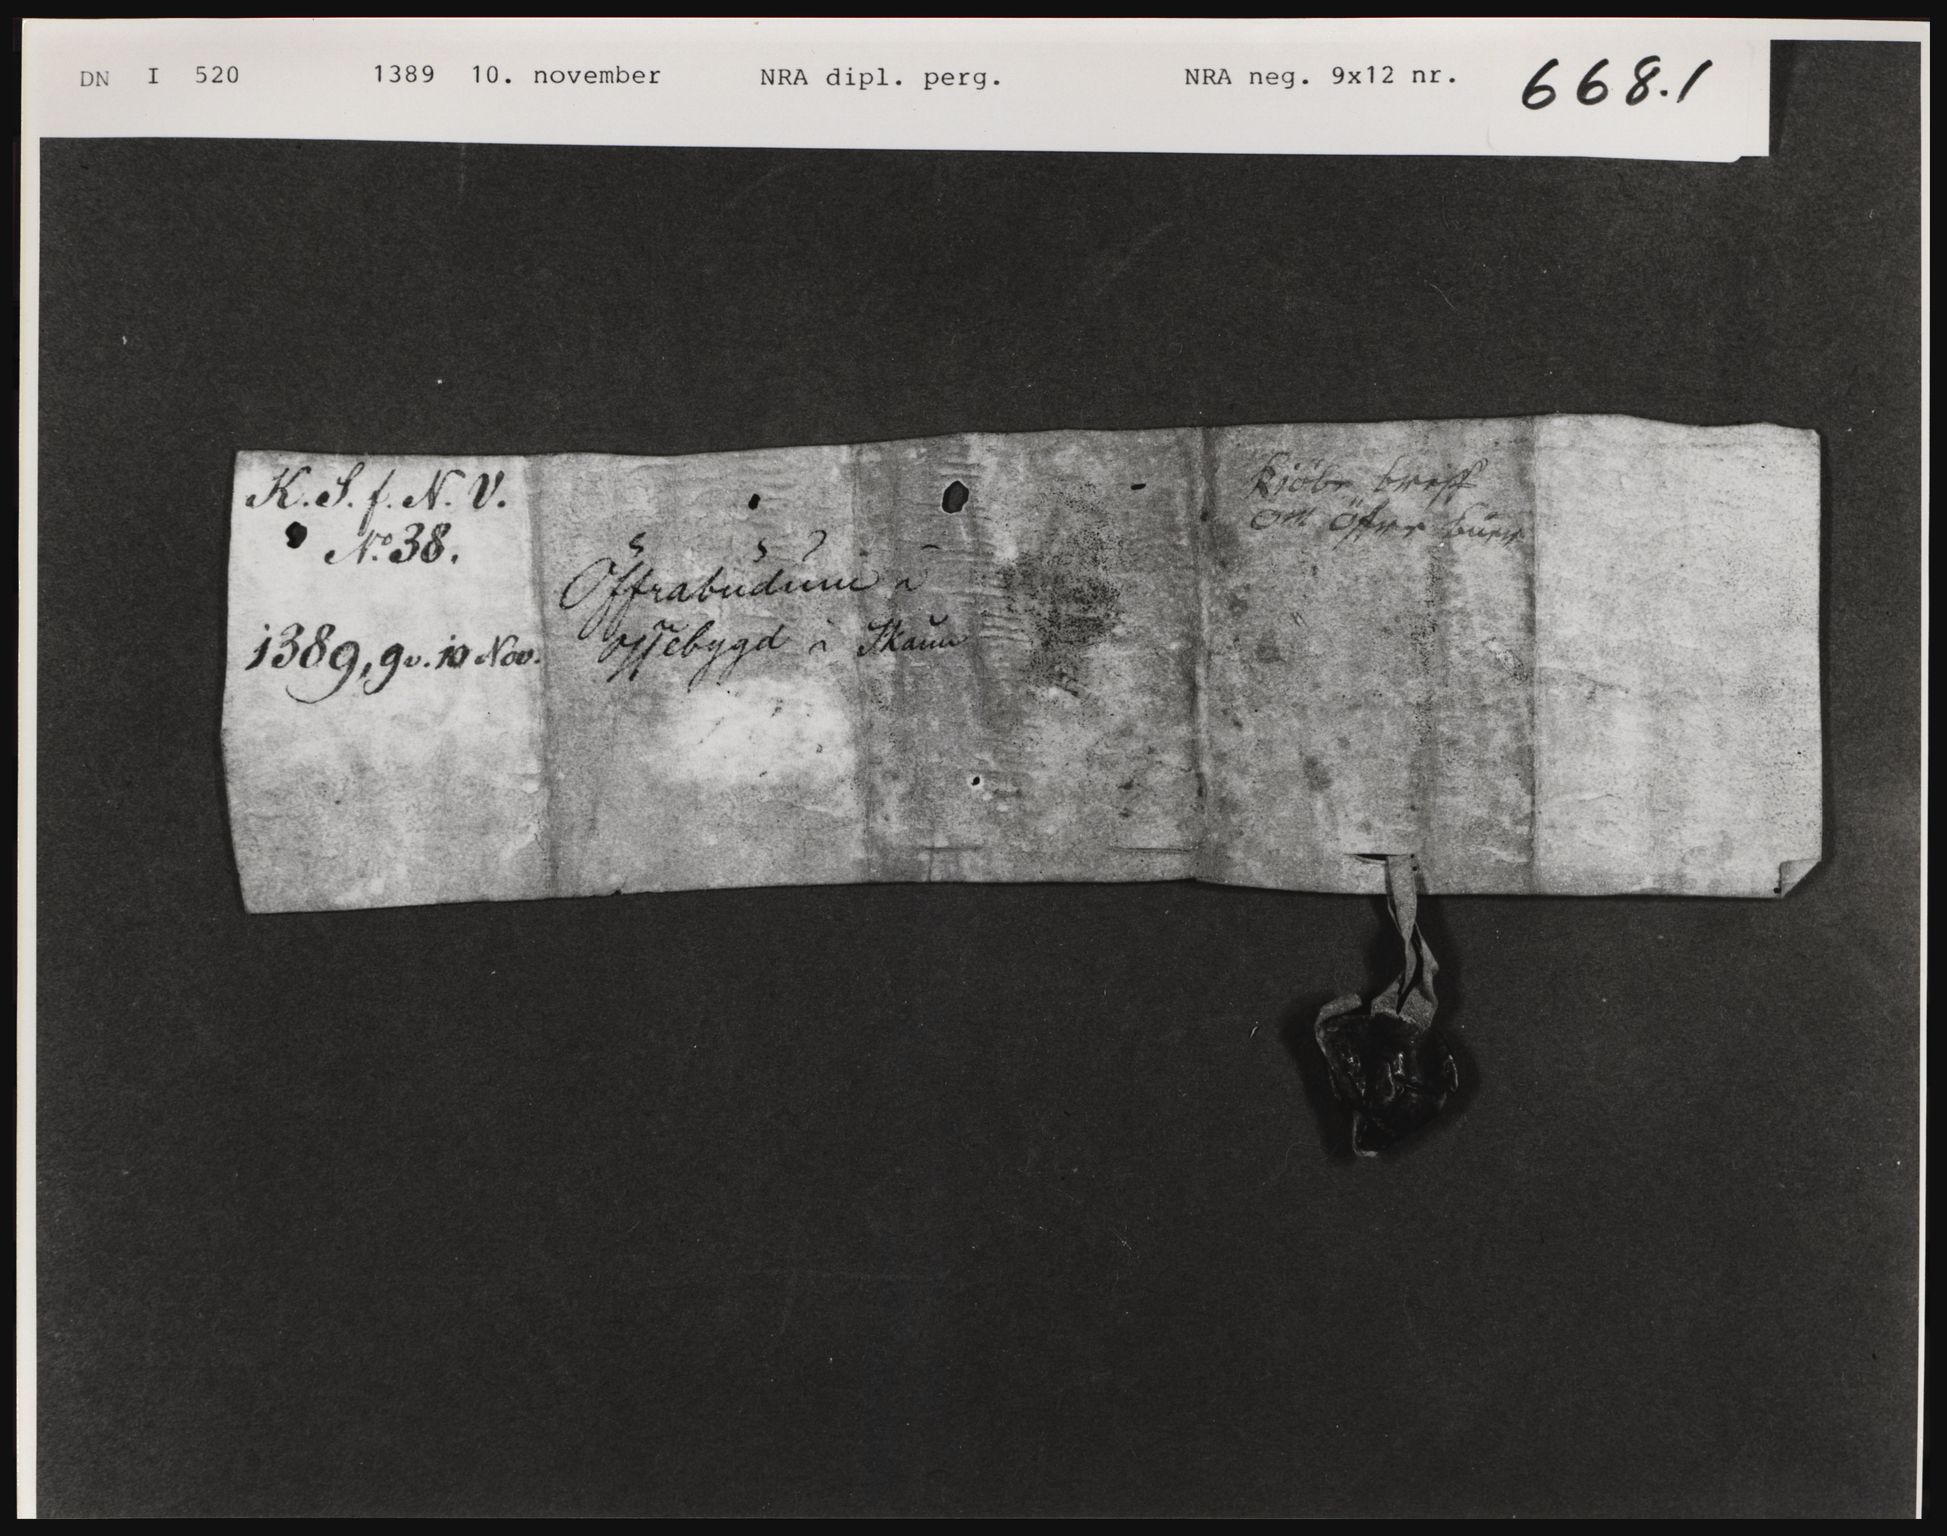 DN I 520 1389 10. november NRA dipl. perg. NRA neg. 9x12 nr. 668.1
K. S. f. N. V.
No 38.
1389, 9v. 10 Nov.
Öffrabudum i
bygd i Skaun
Kiöbe breff
om öffre